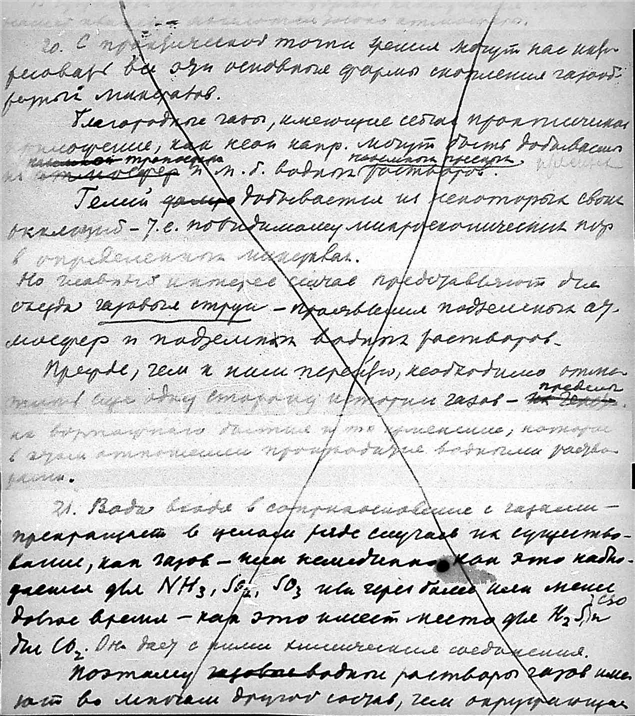 20. С практической точки зрения могут нас инте-
ресовать все эти основные формы скопления газооб-
разный минералов.
Благородные газы, имеющие сейчас практическое
приложение, как неон напр. могут быть добываемы
и м. б. водных растворов.
Гелий добывается из некоторых своих
окклюзий – т.е. по видимому микроскопических пор
в определенных минералах.
Но главный интерес сейчас представляют для
газовые струи – проявления подземных ат-
мосфер и подземных водных растворов.
Прежде, чем к ним перейду, необходимо отме-
тить еще одну сторону истории газов – пределы
на то изменение, которое
в этом отношении производится водными раство-
рами.
21. Вода входя в соприкосновение с газами –
превращает в целом ряде случаев их существо-
вание, как газов – или немедленно как это наблю-
дается для NH3, SO2, SO3 или через более или менее
долгое время – как это имеет место для H2S, CSO
для CO2. Она дает с ними химические соединения.
Поэтому водные растворы газов име-
ют во многом другой состав, чем окружающие